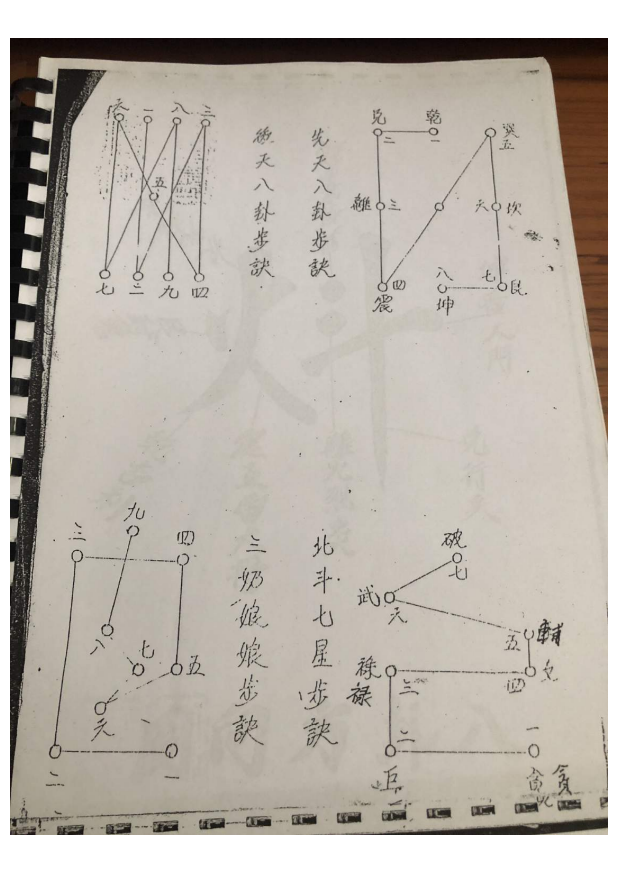 兌 乾
二 一
巽
五
離 三
六 坎
四
震
八
坤
七 艮
先天八卦步訣
後天八卦步訣
六 一 八 三
五
七 二 九 四
破
七
武
六
五 輔
祿
祿 三
四 文
二 一
巨
貪
北斗七星步訣
三奶娘娘步訣
九
三 四
八 七 五
六
二 一